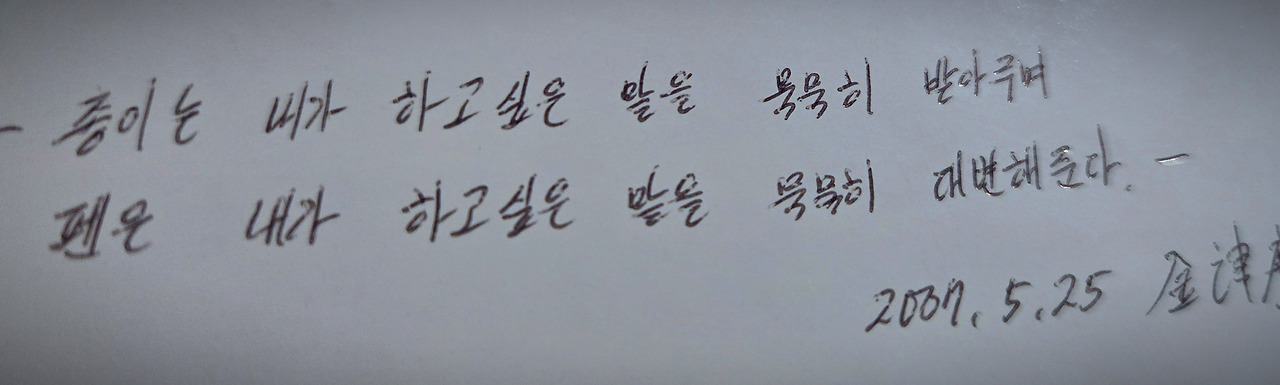 - 종이는 내가 하고싶은 말을 묵묵히 받아주며
펜은 내가 하고싶은 말을 묵묵히 대변해준다. -
2007. 5. 25 金